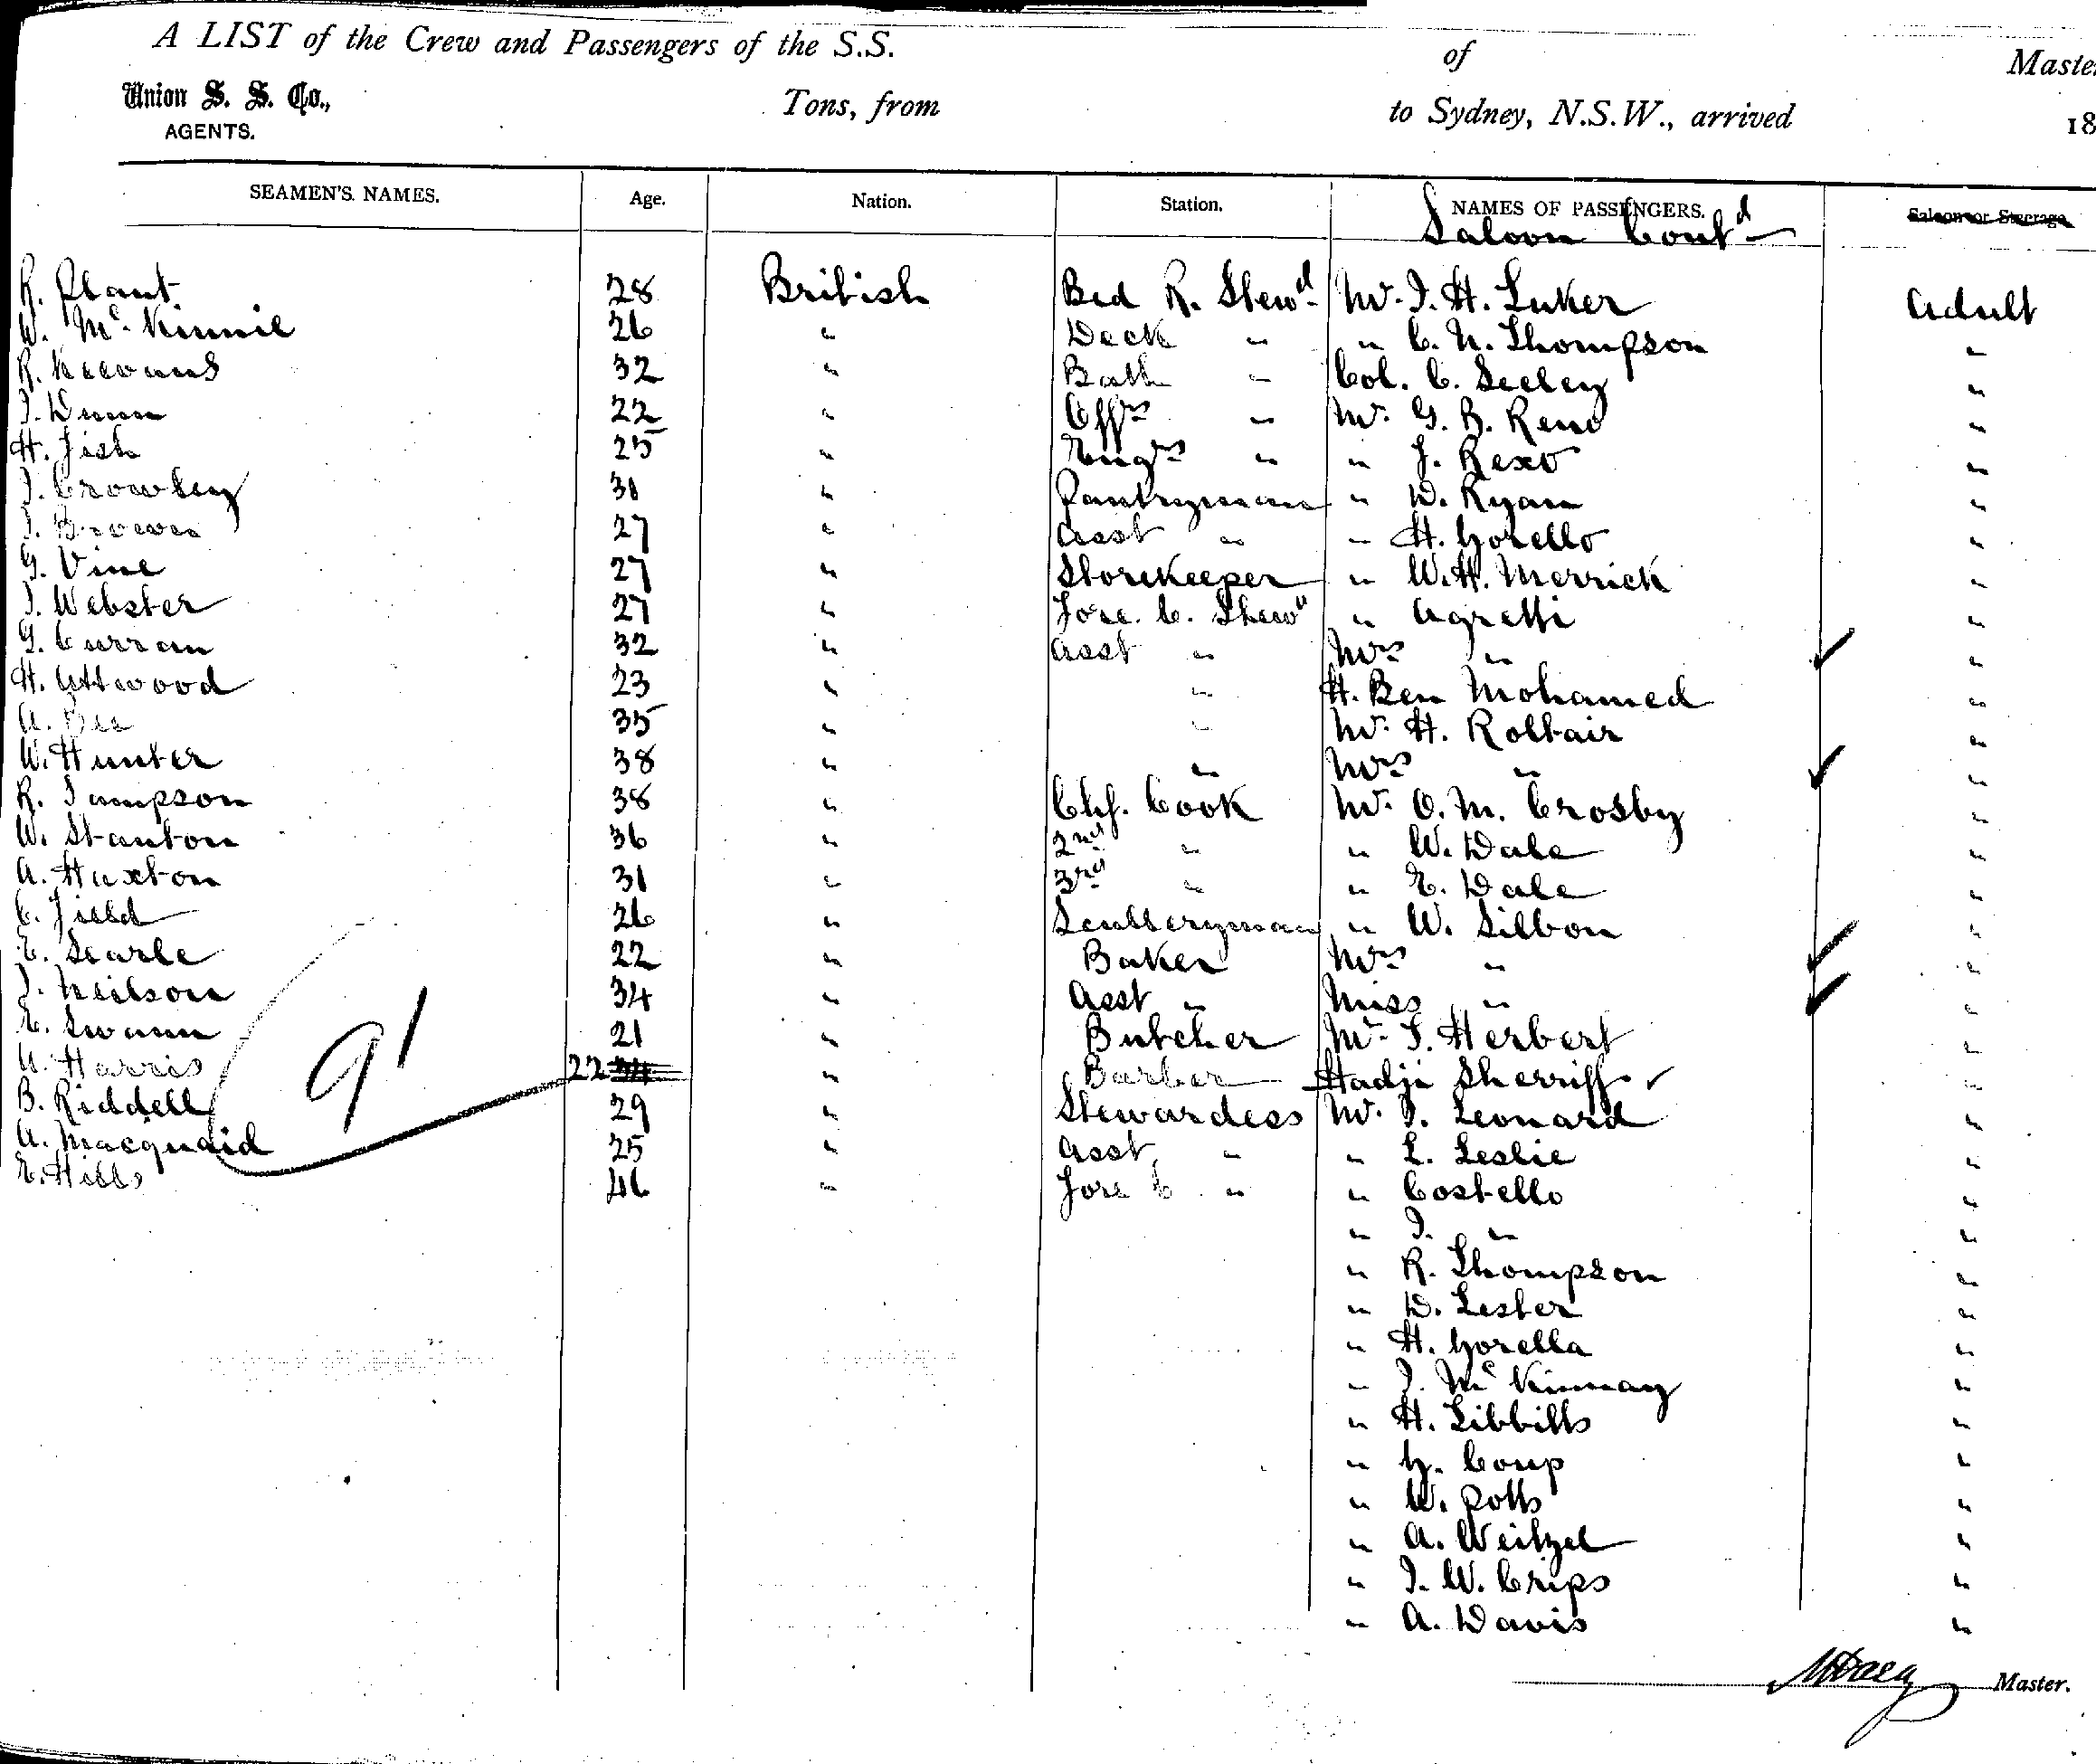 A LIST of the Crew and Passengers of the S.S. of Master
Union S. S. Co., Tons, from to Sydney, N.S.W., arrived 18
AGENTS.
SEAMEN'S. NAMES. Age. Nation. Station. NAMES OF PASSENGERS. Saloon or Steerage
Saloon Contd
R. Plant 28 British Bed R. Stewd Mr. J. H. Luker Adult
W. Mc. Kinnie 26 " Deck " " C. N. Thompson "
R. Keevans 32 " Bath " Col. C. Seeley "
J. Dunn 22 " Offrs " Mr. G. B. Reno "
H. Fish 25 " Engrs " " J. Rexo "
J. Crowley 31 " Pantryman " D. Ryan "
J. Brown 27 " Asst " " H. Gorello "
G. Vine 27 " Storekeeper " W. H. Merrick "
J. Webster 27 " Fore. C. Stewd " Agretti "
G. Curran 32 " Asst " Mrs " "
H. Attwood 23 " " H. Ben Mohamed "
A. Bee 35 " " Mr. H. Roltair "
W. Hunter 38 " " Mrs " "
R. Simpson 38 " Chf. Cook Mr. O. M. Crosby "
W. Stanton 36 " 2nd " " W. Dale "
A. Huxton 31 " 3rd " " E. Dale "
C. Field 26 " Sculleryman " W. Silbon "
E. Searle 22 " Baker Mrs " "
J. Neilson 34 " Asst " Miss " "
E. Swann 21 " Butcher Mr. F. Herbert "
A. Harris 22 " Barber Hadji Sherriff "
B. Riddell 29 " Stewardess Mr. J. Leonard "
A. Macquaid 25 " Asst. " " L. Leslie "
E. Hills 46 " Fore C " " Costello "
" J. " "
" R. Thompson "
" D. Lester "
" H. Gorella "
" J. Mc Kinnay "
" H. Libbills "
" G. Coup "
" W. Potts "
" A. Weitzel "
" J. W. Crips "
" A. Davis "
91
Master.